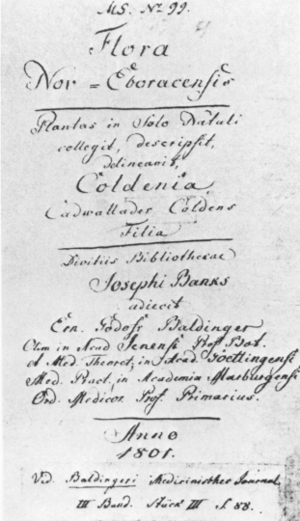 MS. No 99.
Flora
Nov = Eboracensis
Plantas in Solo Natali
collegit, descripsit,
delineavit,
Coldenia,
Cadwallader Coldens
Filia
Divitiis Bibliothecae
Josephi Banks
adiecit
Ern. Godofr Baldinger
Olim in Acad Jenensi Prof. Bot.
et Med. Theoret, in Acad. Goettingensi
Med. Pract. in Academia Marburgensi
Ord. Medicor. Prof. Primarius.
Anno
1801.
Vid. Baldingeri Medicinisches Journal
III Band. Stück III S. 88.